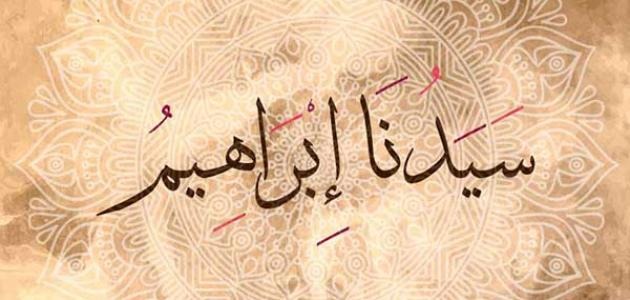 سَيَدُنَا إِبْرَاهِيمُ